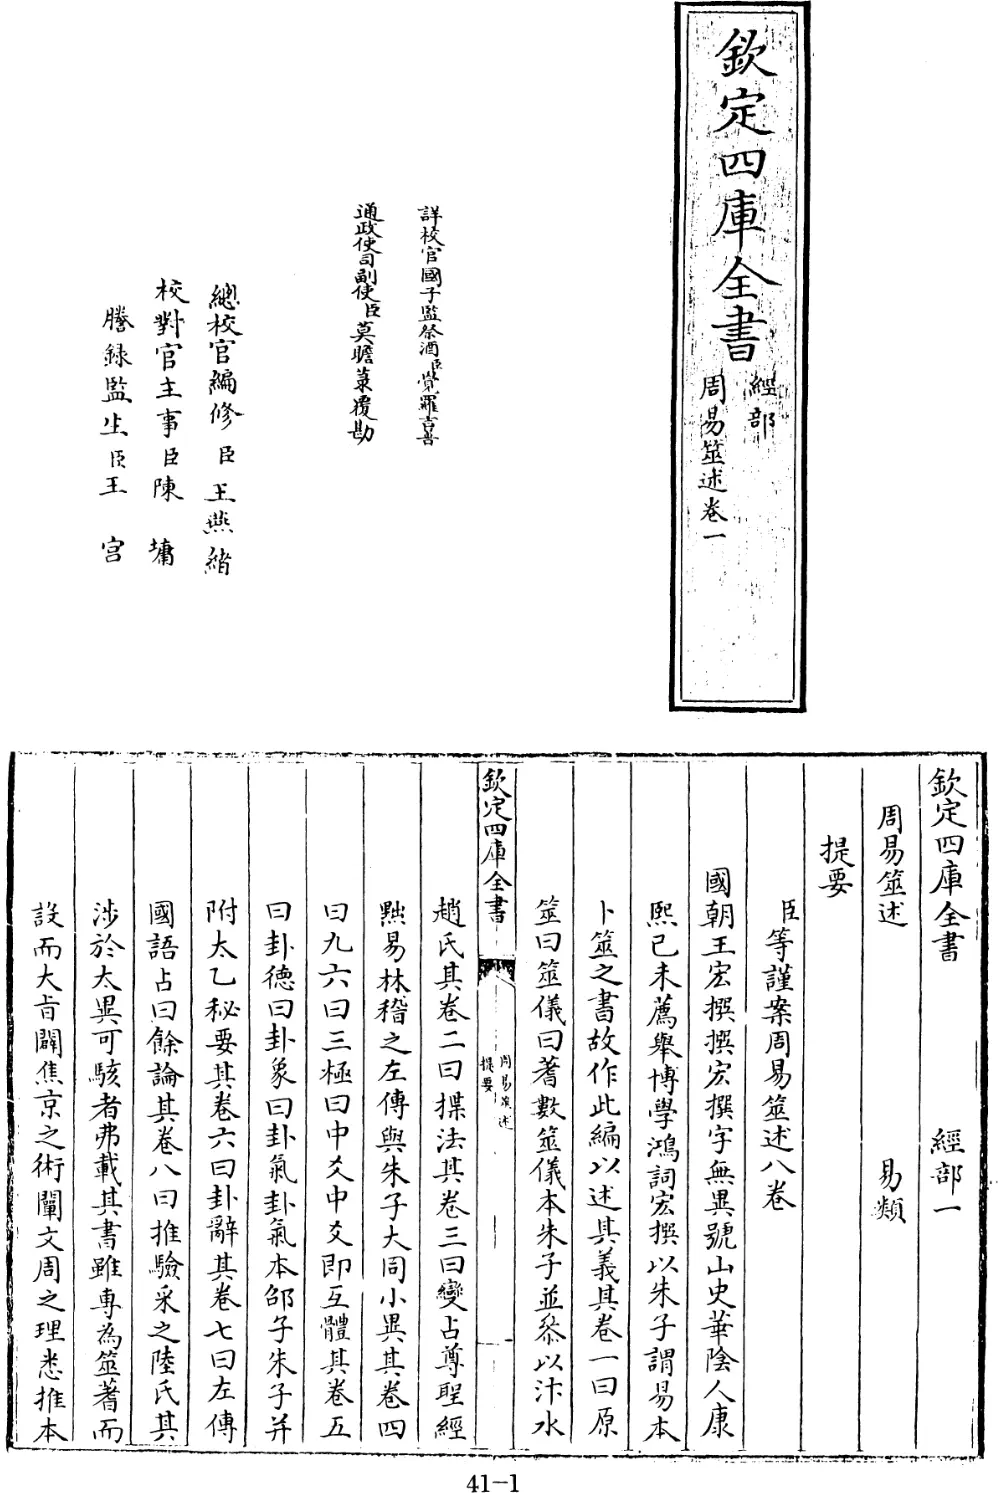 欽定四庫全書
經部
周易筮述卷一
詳校官國子監祭酒臣覺羅吉善
通政使司副使臣莫瞻菉覆勘
總校官編修臣王燕緒
校對官主事臣陳墉
謄錄監生臣王宫
欽定四庫全書 經部一
周易筮述 易類
提要
臣等謹案周易筮述八卷
國朝王宏撰撰宏撰字無異號山史華陰人康
熙己未薦舉博學鴻詞宏撰以朱子謂易本
卜筮之書故作此編以述其義其卷一曰原
筮曰筮儀曰蓍數筮儀本朱子並叅以汴水
欽定四庫全書
周易筮述
提要
趙氏其卷二曰揲法其卷三曰變占尊聖經
黜易林稽之左傳與朱子大同小異其卷四
曰九六曰三極曰中爻中爻即互體其卷五
曰卦德曰卦象曰卦氣卦氣本邵子朱子并
附太乙秘要其卷六曰卦辭其卷七曰左傳
國語占曰餘論其卷八曰推驗采之陸氏其
涉於太異可駭者弗載其書雖専為筮蓍而
設而大旨闢焦京之術闡文周之理悉推本
41-1